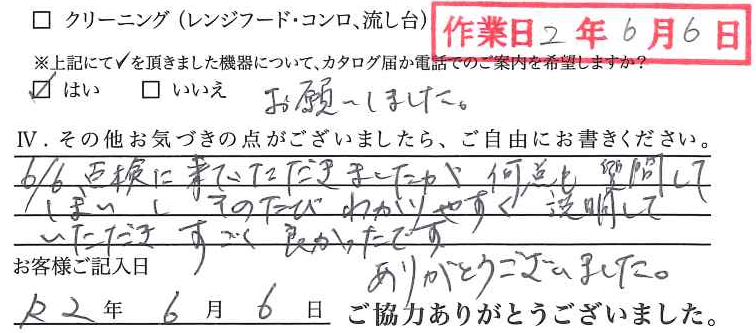 □ クリーニング(レンジフード・コンロ、流し台)
作業日2年6月6日
※上記にて✓を頂きました機器について、カタログ届か電話でのご案内を希望しますか?
☑ はい □ いいえ お願いしました。
Ⅳ.その他お気づきの点がございましたら、ご自由にお書きください。
6/6 点検に来ていただきましたが 何点も 質問して
しまいし そのたび わかりやすく 説明して
いただき すごく 良かったです
ありがとうございました。
お客様ご記入日
R2年6月6日 ご協力ありがとうございました。